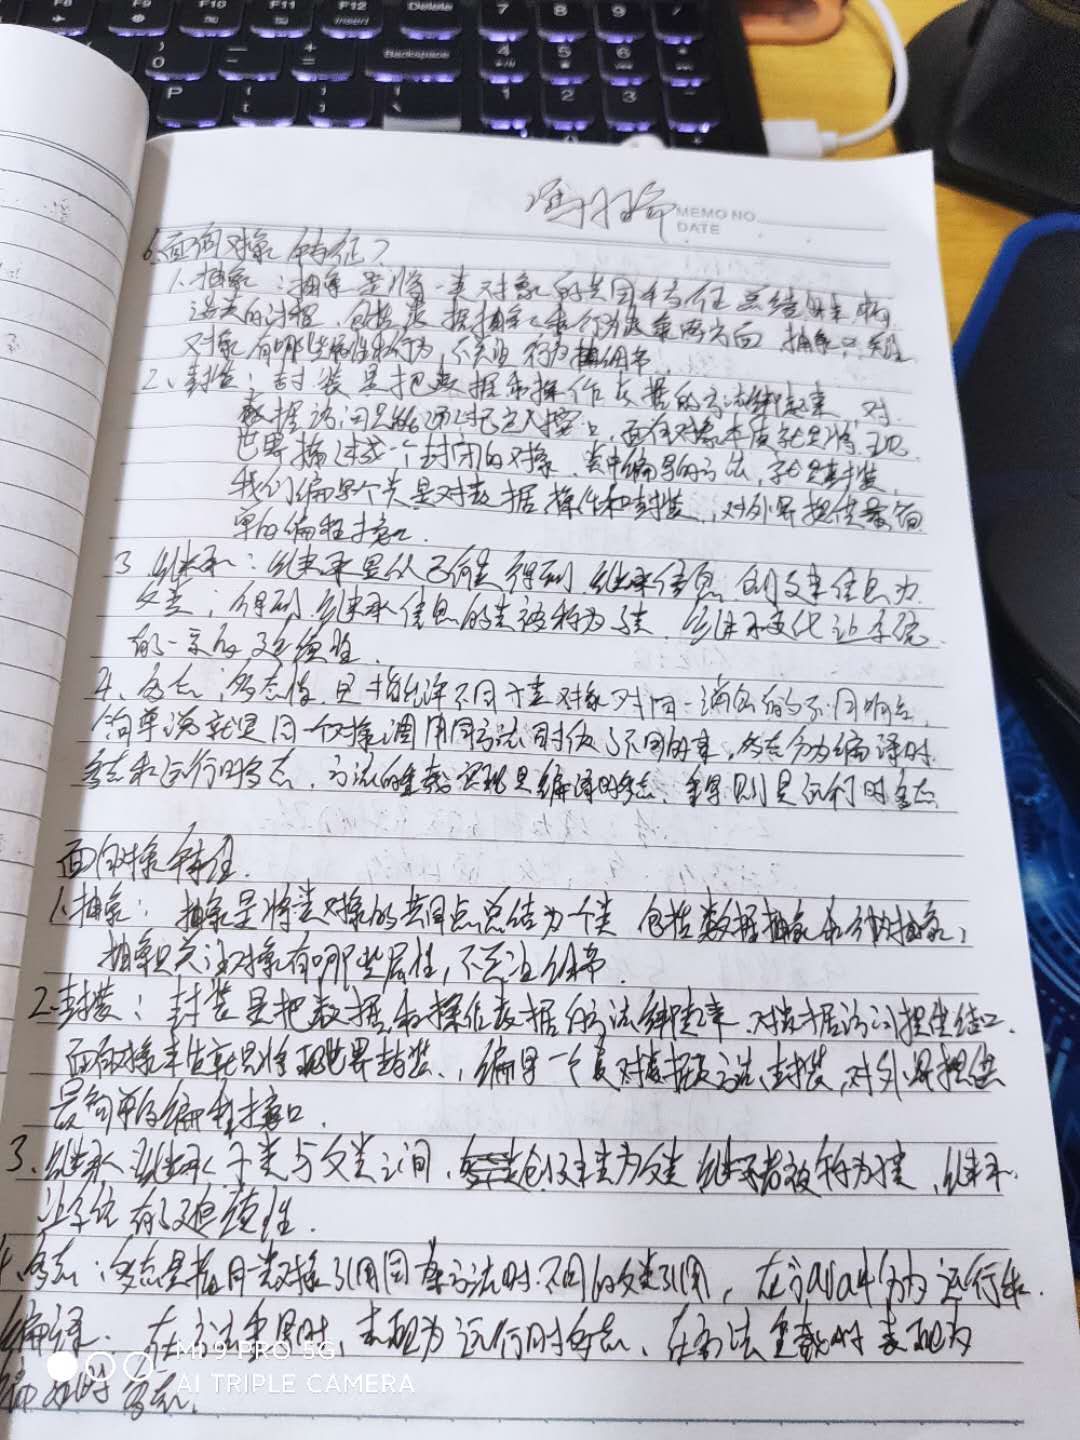 F8 F9 F10 F11 F12 Delete 7 8 9
Insert
Backspace 4 5 6
P 1 2 3
MEMO NO.
DATE
6. 面向对象特征?
1. 抽象:抽象是将一类对象的共同特征总结出来构
造类的过程,包括数据抽象和行为抽象两方面,抽象只关注
对象有哪些属性和行为,不关注行为的细节.
2、封装:封装是把数据和操作数据的方法绑定起来,对
数据访问只能通过已定义接口,面向对象本质就是将现
世界描述成一个封闭的对象.类中编写的方法,就是封装,
我们编写个类是对数据操作和封装,对外界提供最简
单的编程接口.
3. 继承:继承是从已有类得到继承信息 创建信息为
父类;得到继承信息的类被称为子类.继承变化让系统
的一定的延续性.
4、多态:多态性是指允许不同子类对象对同一消息的不同响应,
简单说就是同一个对象调用同方法时做了不同的事,多态分为编译时
多态和运行时多态,方法的重载实现是编译时多态,重写则是运行时多态
面向对象特征.
1、抽象: 抽象是将类对象的共同点总结为个类 包括数据抽象和行为抽象,
抽象只关注对象有哪些属性,不关注细节.
2.封装: 封装是把数据和操作数据的方法绑定起来,对数据访问提供接口.
面向对象本质就是将现世界封装.,编写一个类对数据方法封装,对外界提供
最简单的编程接口.
3、继承: 继承 子类与父类之间, 创建类为父类 继承者被称为子类,继承
让系统有了延续性.
4、多态:多态是指同类对象引用同样方法时不同的父类引用,在java中分为运行和
编译. 在方法重写时,表现为运行时多态、在方法重载时表现为
编译时多态.
MI 9 PRO 5G
AI TRIPLE CAMERA